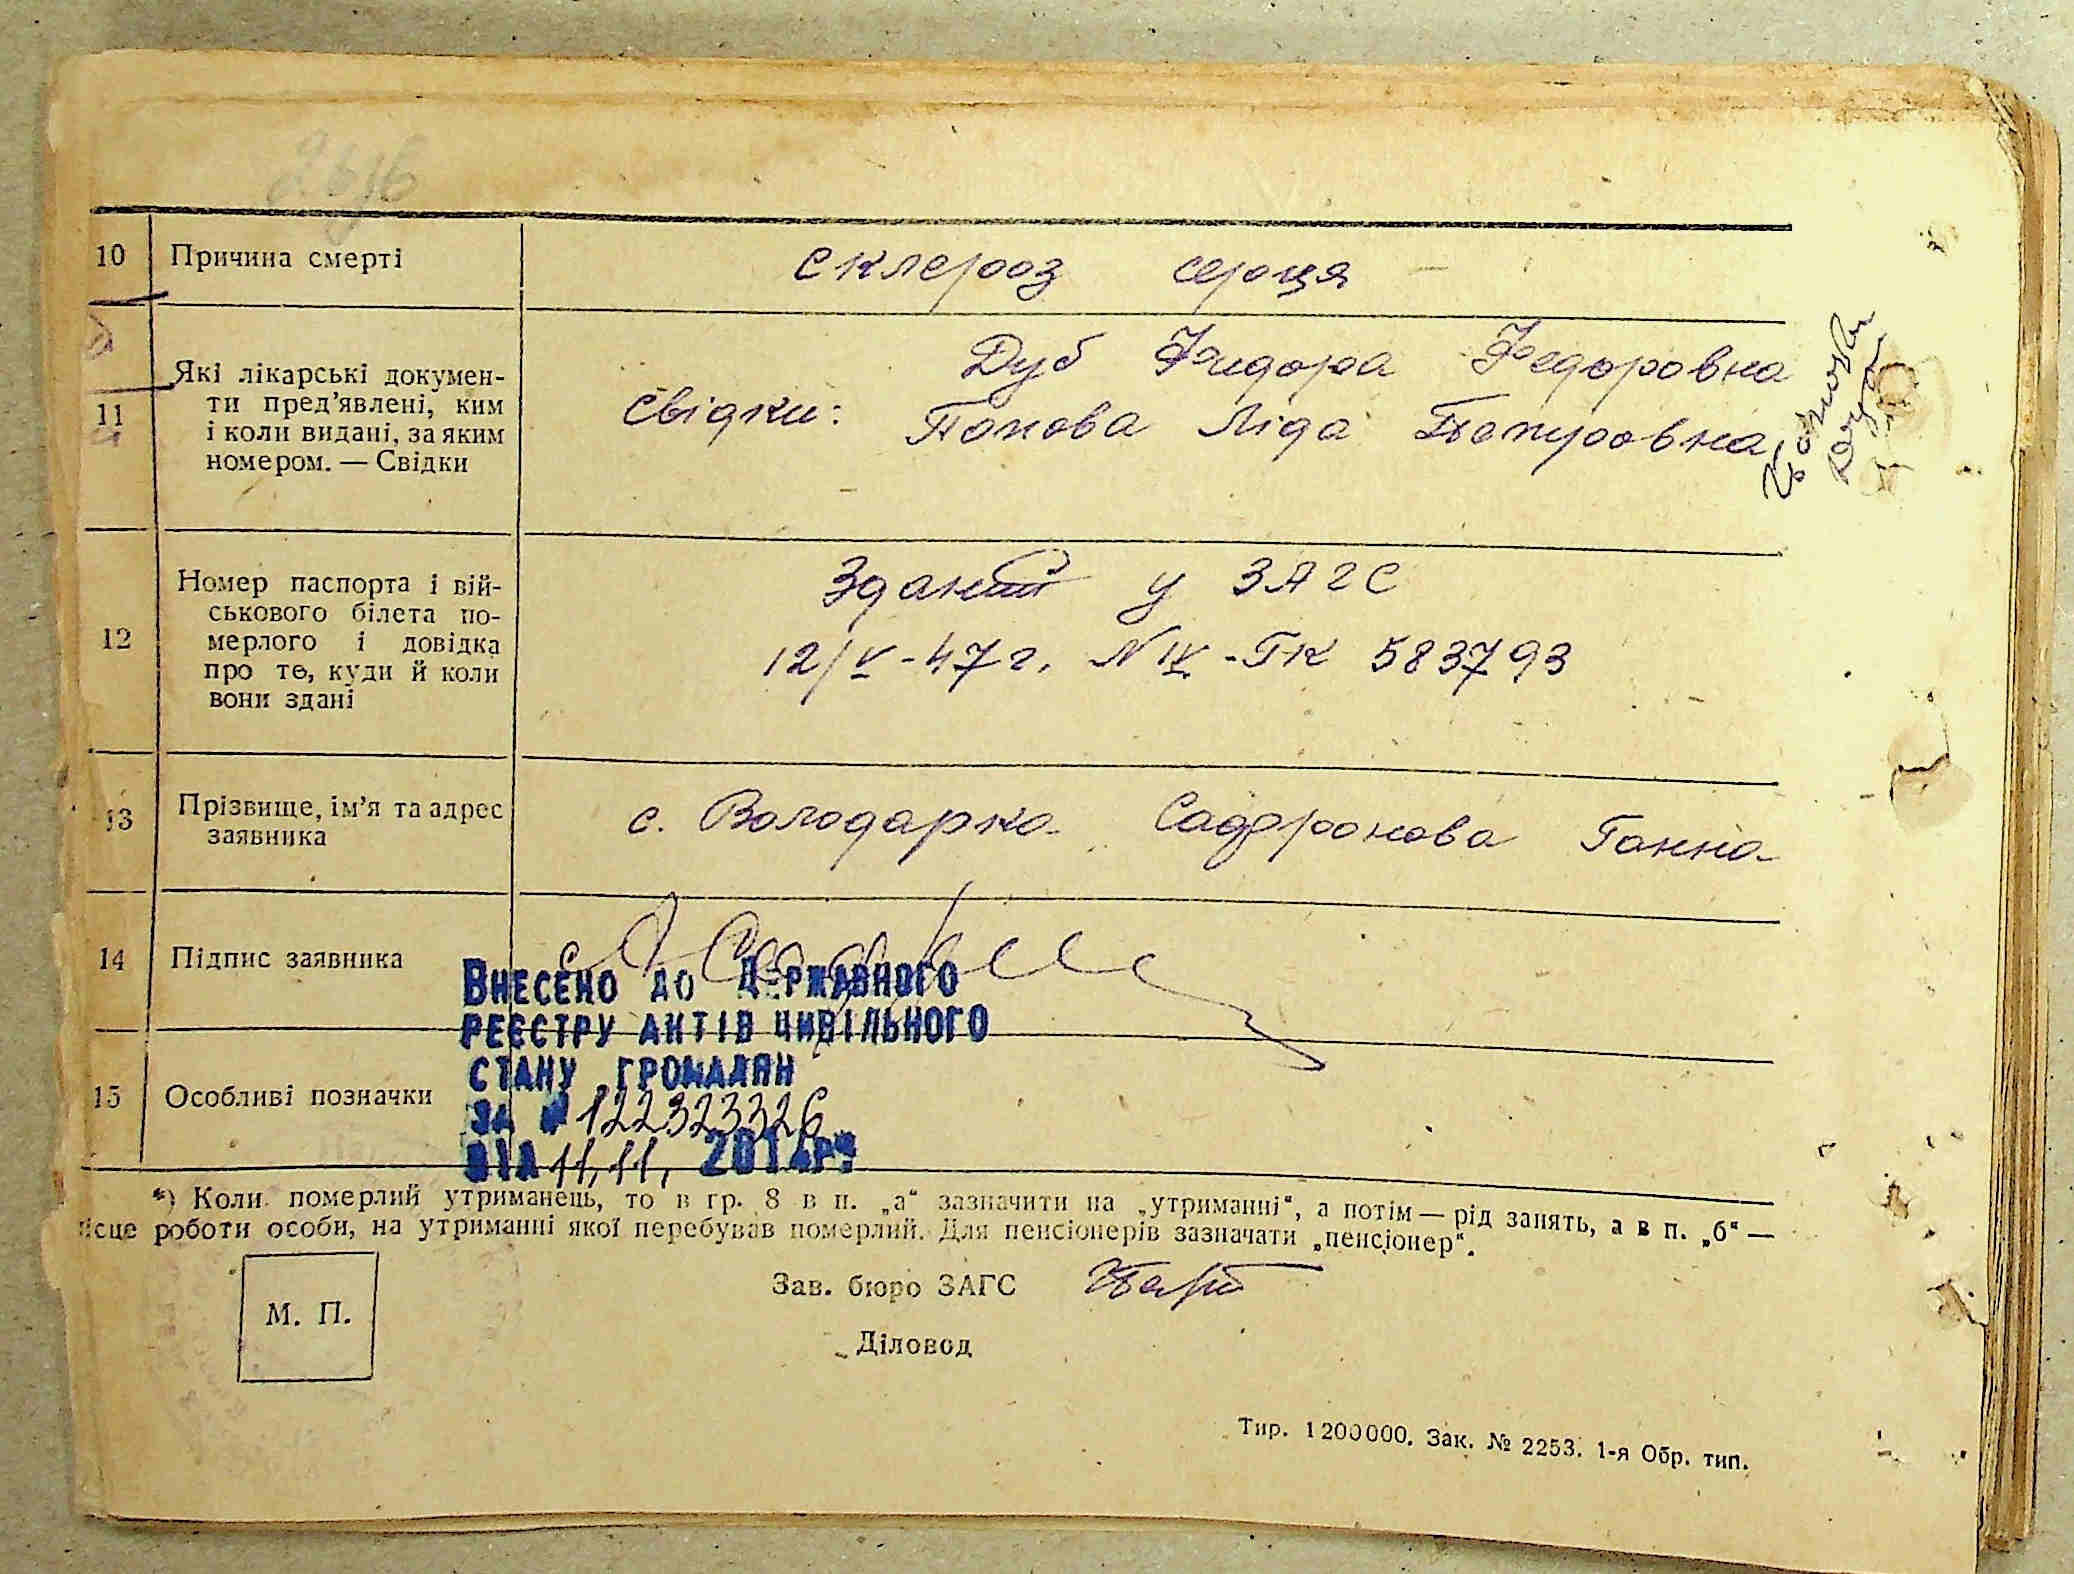 10 Причина смерті склероз серця
11 Які лікарські докумен-
ти пред'явлені, ким
і коли видані, за яким
номером. — Свідки
Дуб Федора Федоровна
Свідки: Попова Ліда Петровна
12 Номер паспорта і вій-
ськового білета по-
мерлого і довідка
про те, куди й коли
вони здані
Зданий у ЗАГС
12/V-47г. N IV-ГК 583793
13 Прізвище, ім'я та адрес
заявника
с. Володарка Сафронова Ганна
14 Підпис заявника
15 Особливі позначки
Внесено до Державного
реєстру актів цивільного
стану громадян
за № 122323326
від 11.11. 201 р
*) Коли померлий утриманець, то в гр. 8 в п. „а“ зазначити на „утриманні“, а потім — рід занять, а в п. „б“ —
ісце роботи особи, на утриманні якої перебував померлий. Для пенсіонерів зазначати „пенсіонер“.
М. П.
Зав. бюро ЗАГС
Діловод
Тир. 1200000. Зак. № 2253. 1-я Обр. тип.